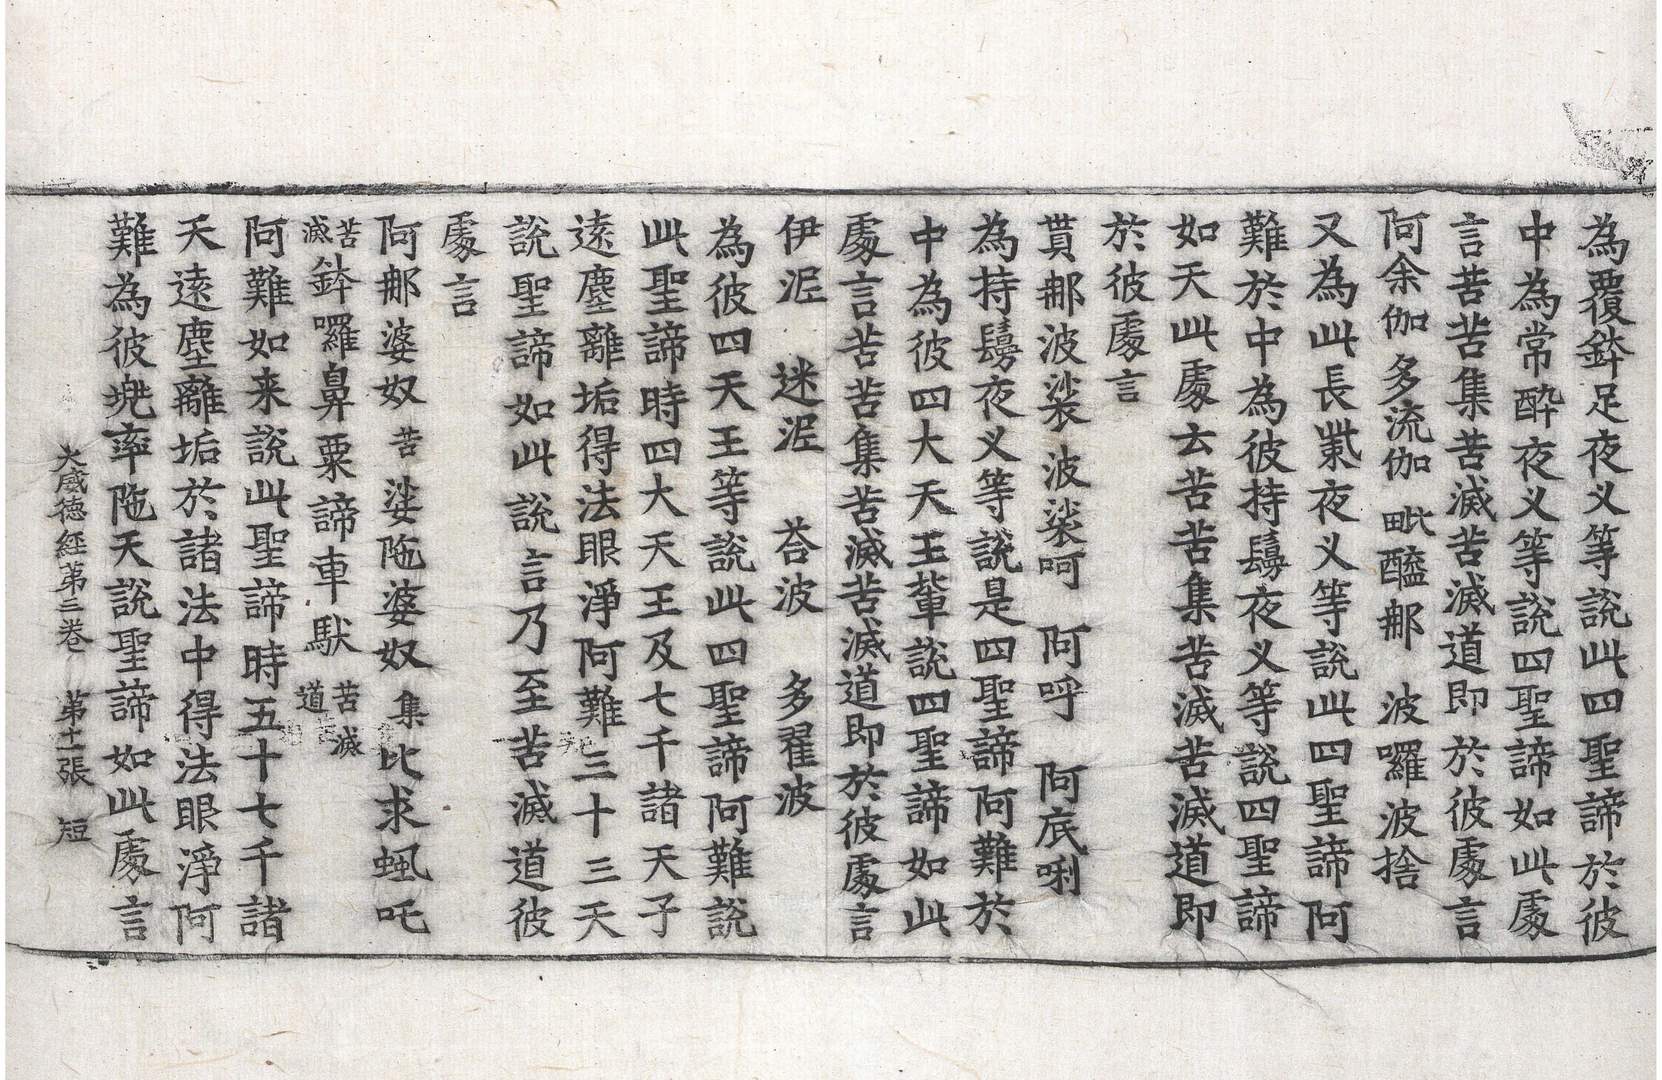 為覆鉢足夜叉等說此四聖諦於彼
中為常醉夜叉等說四聖諦如此處
言苦苦集苦滅苦滅道即於彼處言
阿余伽 多流伽 毗醯那 波囉波捨
又為此長髦夜叉等說此四聖諦阿
難於中為彼持鬘夜叉等說四聖諦
如天此處云苦苦集苦滅苦滅道即
於彼處言
貰那波裟 波裟呵 阿呼 阿底唎
為持鬘夜叉等說是四聖諦阿難於
中為彼四大天王輩說四聖諦如此
處言苦苦集苦滅苦滅道即於彼處言
伊泥 迷泥 荅波 多翟波
為彼四天王等說此四聖諦阿難說
此聖諦時四大天王及七千諸天子
遠塵離垢得法眼淨阿難三十三天
說聖諦如此說言乃至苦滅道彼
處言
阿那婆奴 苦 娑陁婆奴 集 比求䖝吒
苦滅 鉢囉鼻粟諦車馱 苦滅道
阿難如来說此聖諦時五十七千諸
天遠塵離垢於諸法中得法眼淨阿
難為彼兠率陁天說聖諦如此處言
大威德經第三卷 第十二張 短